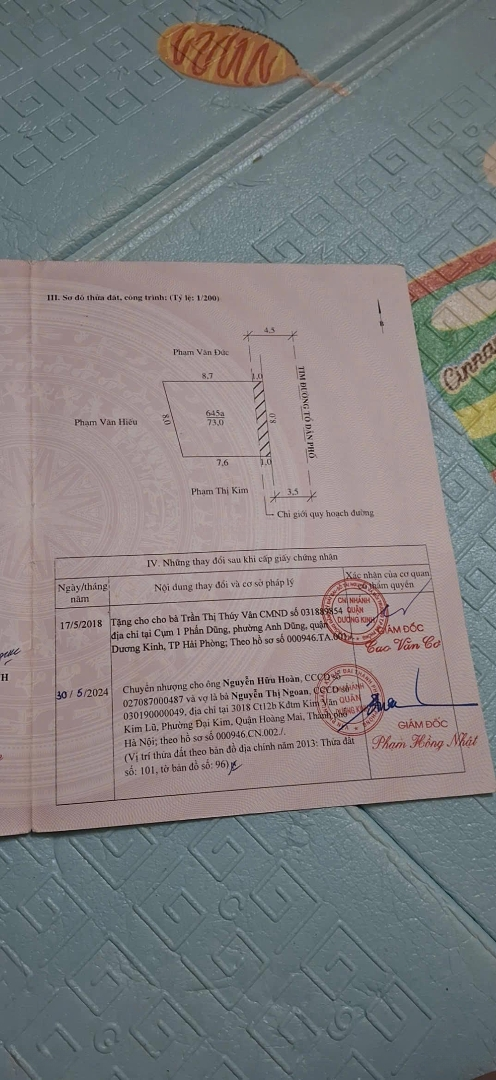 III. Sơ đồ thửa đất, công trình: (Tỷ lệ: 1/200)
4,5
Phạm Văn Đức
8,7
1,0
TIM ĐƯỜNG TỔ DÂN PHỐ
Phạm Văn Hiêu
8,0
645a
73,0
8,0
7,6
1,0
Phạm Thị Kim
3,5
Chỉ giới quy hoạch đường
IV. Những thay đổi sau khi cấp giấy chứng nhận
Ngày/tháng
năm
Nội dung thay đổi và cơ sở pháp lý
Xác nhận của cơ quan
có thẩm quyền
17/5/2018
Tặng cho cho bà Trần Thị Thúy Vân CMND số 031889854
địa chỉ tại Cụm 1 Phấn Dũng, phường Anh Dũng, quận
Dương Kinh, TP Hải Phòng; Theo hồ sơ số 000946.TA.001
CHI NHÁNH
QUẬN
DƯƠNG KINH
GIÁM ĐỐC
Cao Văn Cơ
30/5/2024
Chuyển nhượng cho ông Nguyễn Hữu Hoàn, CCCD số
027087000487 và vợ là bà Nguyễn Thị Ngoan, CCCD số
030190000049, địa chỉ tại 3018 Ct12b Kđtm Kim Văn
Kim Lũ, Phường Đại Kim, Quận Hoàng Mai, Thành phố
Hà Nội; theo hồ sơ số 000946.CN.002./.
(Vị trí thửa đất theo bản đồ địa chính năm 2013: Thửa đất
số: 101, tờ bản đồ số: 96)
NHÁNH
QUẬN
DƯƠNG KINH
GIÁM ĐỐC
Phạm Hồng Nhật
H
Cinna